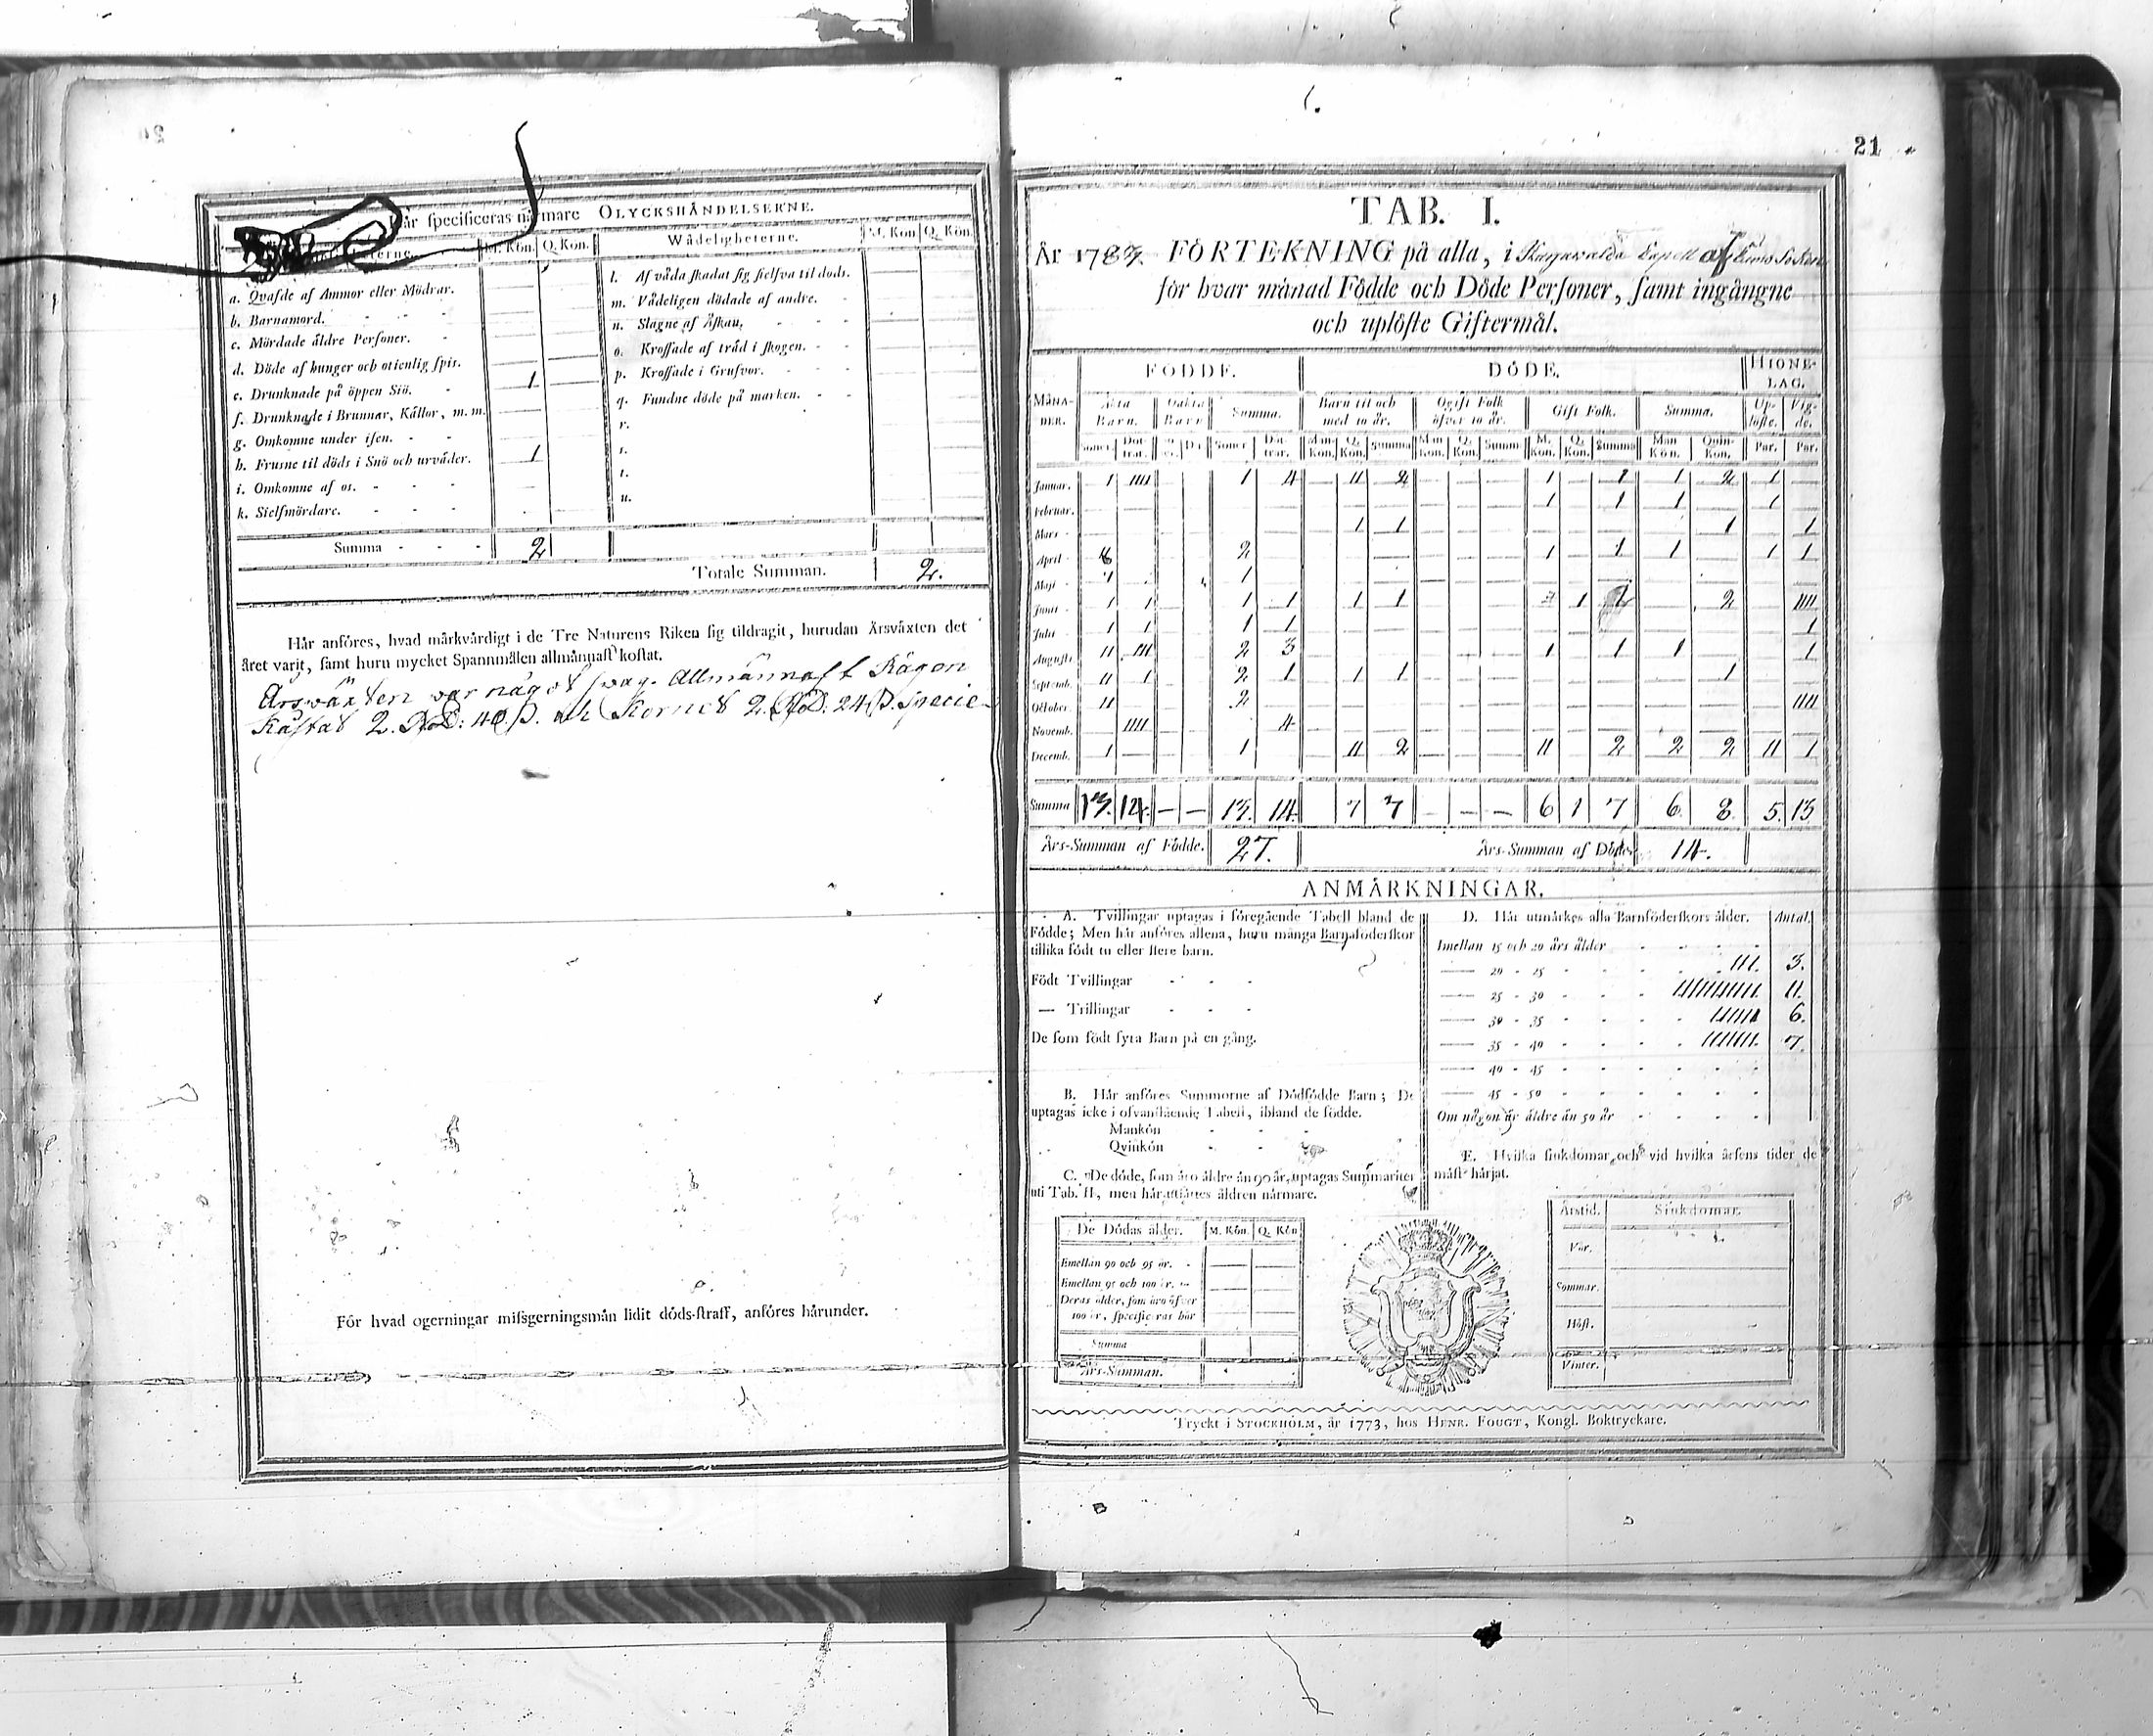 Hår specificeras nårmare OLYCKSHÅNDELSERNE.
M. Kön. Q. Kön. Wådeligheterne. M. Kön Q. Kön.
a. Qvafde af Ammor eller Mödrar.
b. Barnamord.
c. Mördade åldre Personer.
d. Döde af hunger och otienlig spis.
e. Drunknade på öppen Siö. 1
f. Drunknade i Brunnar, Kållor, m.m.
g. Omkomne under isen.
h. Frusne til döds i Snö och urvåder. 1
i. Omkomne af os.
k. Sielfmördare.
l. Af våda skadat sig sielfva til döds.
m. Vådeligen dödade af andre.
n. Slagne af Åskan.
o. Krossade af tråd i skogen.
p. Krossade i Grufvor.
q. Fundne döde på marken.
r.
s.
t.
u.
Summa 2
Totale Summan. 2.
Hår anföres, hvad mårkvårdigt i de Tre Naturens Riken sig tildragit, hurudan Årsvåxten det
året varit, samt huru mycket Spannmålen allmånnast kostat.
Årswäxten war något swag. Allmännast Rågen
Kåstat 2. RD: 40 ß. och Kornet 2. RD: 24 ß. Specie
För hvad ogerningar missgerningsmån lidit döds-straff, anföres hårunder.
21
TAB. I.
År 178 FÖRTEKNING på alla, i Capell af Eurs Sokn
för hvar månad Födde och Döde Personer, samt ingångne
och uplöste Giftermål.
FÖDDE. DÖDE. HIONE-
LAG.
MÅNA-
DER. Åkta
Barn. Oåkta
Barn Summa. Barn til och
med 10 år. Ogift Folk
öfver 10 år. Gift Folk. Summa. Up-
löste. Vig-
de.
Söner. Döt-
trar. Söner Döt-
trar. Man-
Kön. Q.
Kön. Summa Man
Kön. Q.
Kön. Summ M.
Kön. Q.
Kön. Summa Man
Kön. Quin-
Kön. Par. Par.
Januar. 1 1111 1 4 11 2 1 1 1 2 1
Februar. 1 1 1 1
Mars 1 1 1 1
April 2 1 1 1 1 1
Maji 1 1
Junii 1 1 1 1 1 1 1 2 1111
Julii 1 1 1 1 1
Augusti 11 111 2 3 1 1 1 1
Septemb. 11 1 2 1 1 1 1
Oktober 11 2 1111
Novemb. 1111 4
Decemb. 1 1 11 2 11 2 2 2 11 1
Summa 13. 14. — — 13. 14. 7 7 — — — 6 1 7 6. 8. 5. 13
Års-Summan af Födde. 27. Års-Summan af Döde 14.
ANMÅRKNINGAR.
A. Tvillingar uptagas i föregående Tabell bland de
Födde; Men hår anföres allena, huru många Barnaföderskor
tillika födt tu eller flere barn.
Födt Tvillingar
— Trillingar
De som födt fyra Barn på en gång.
B. Hår anföres Summorne af Dödfödde Barn; De
uptagas icke i ofvanstående Tabell, ibland de födde.
Mankön
Qvinkön
C. De döde, som åro åldre ån 90 år, uptagas Summariter
uti Tab. II, men hår anföres åldren nårmare.
De Dödas ålder. M. Kön. Q. Kön
Emellan 90 och 95 år.
Emellan 95 och 100 år.
Deras ålder, som åro öfver
100 år, specificeras hår
Summa
Års-Summan.
D. Hår utmårkes alla Barnföderskors ålder. Antal.
Imellan 15 och 20 års ålder
— 20 - 25 111. 3.
— 25 - 30 11111111111. 11.
— 30 - 35 111111 6.
— 35 - 40 1111111. 7.
— 40 - 45
— 45 - 50
Om någon år åldre ån 50 år
E. Hvilka siukdomar och vid hvilka årsens tider de
måst hårjat.
Årstid. Siukdomar.
Vår.
Sommar.
Höst.
Vinter.
Tryckt i STOCKHOLM, år 1773, hos HENR. FOUGT, Kongl. Boktryckare.